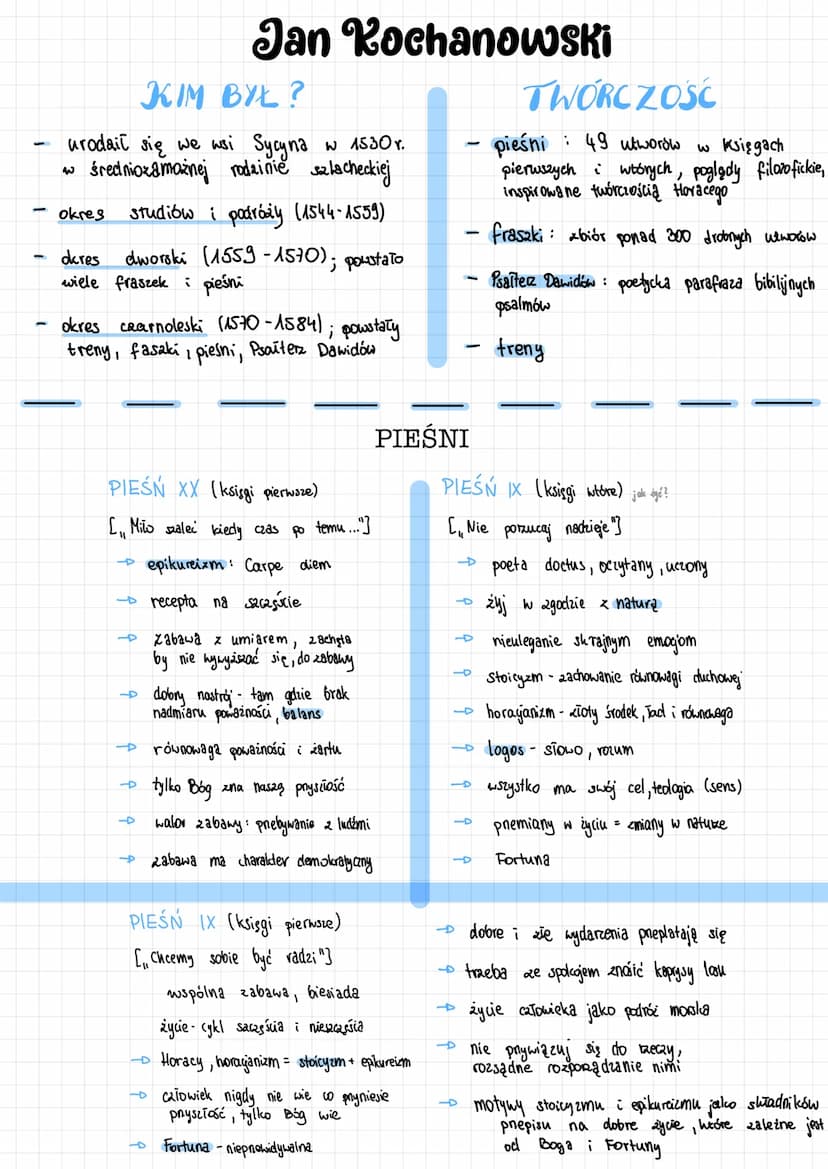 Jan Kochanowski
KIM BYŁ?
- urodził się we wsi Sycyna w 1530 r.
w średniozamożnej rodzinie szlacheckiej
- okres studiów i podróży (1544-1559)
- okres dworski (1559-1570); powstało
wiele fraszek i pieśni
- okres czarnoleski (1570-1584); powstały
treny, faszki, pieśni, Psałterz Dawidów
TWÓRCZOŚĆ
- pieśni : 49 utworów w Księgach
pierwszych i wtórych, poglądy filozofickie,
inspirowane twórczością Horacego
- fraszki : zbiór ponad 300 drobnych utworów
- Psałterz Dawidów : poetycka parafraza bibilijnych
psalmów
- treny
PIEŚNI
PIEŚŃ XX (księgi pierwsze)
[„Miło szaleć kiedy czas po temu..."]
→ epikureizm: Carpe diem
→ recepta na szczęście
→ zabawa z umiarem, zachęta
by nie wywyższać się, do zabawy
→ dobry nastrój - tam gdzie brak
nadmiaru poważności, balans
→ równowaga poważności i żartu
→ tylko Bóg zna naszą przyszłość
→ walor zabawy: przebywanie z ludźmi
→ zabawa ma charakter demokratyczny
PIEŚŃ IX (księgi wtóre) jak żyć?
[„Nie porzucaj nadzieje"]
→ poeta doctus, oczytany, uczony
→ żyj w zgodzie z naturą
→ nieuleganie skrajnym emocjom
→ stoicyzm - zachowanie równowagi duchowej
→ horacjanizm - złoty środek, ład i równowaga
→ logos - słowo, rozum
→ wszystko ma swój cel, teologia (sens)
→ przemiany w życiu = zmiany w naturze
→ Fortuna
PIEŚŃ IX (księgi pierwsze)
[„Chcemy sobie być radzi"]
wspólna zabawa, biesiada
życie - cykl szczęścia i nieszczęścia
→ Horacy, horacjanizm = stoicyzm + epikureizm
→ człowiek nigdy nie wie co przyniesie
przyszłość, tylko Bóg wie
→ Fortuna - nieprzewidywalna
→ dobre i złe wydarzenia przeplatają się
→ trzeba ze spokojem znosić kaprysy losu
→ życie człowieka jako podróż morska
→ nie przywiązuj się do rzeczy,
rozsądne rozporządzanie nimi
→ motywy stoicyzmu i epikureizmu jako składników
przepisu na dobre życie, które zależne jest
od Boga i Fortuny